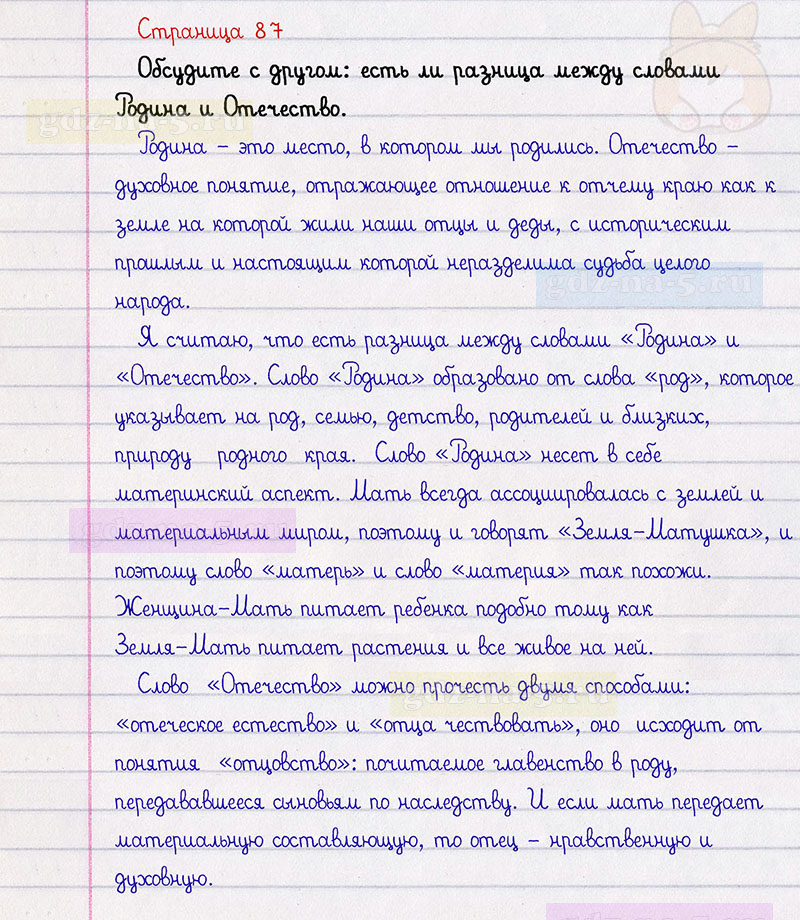 Страница 87
Обсудите с другом: есть ли разница между словами
Родина и Отечество.
gdz-na-5.ru
Родина – это место, в котором мы родились. Отечество –
духовное понятие, отражающее отношение к отчему краю как к
земле на которой жили наши отцы и деды, с историческим
прошлым и настоящим которой неразделима судьба целого
gdz-na-5.ru
народа.
Я считаю, что есть разница между словами «Родина» и
«Отечество». Слово «Родина» образовано от слова «род», которое
указывает на род, семью, детство, родителей и близких,
природу родного края. Слово «Родина» несет в себе
материнский аспект. Мать всегда ассоциировалась с землей и
gdz-na-5.ru
материальным миром, поэтому и говорят «Земля-Матушка», и
поэтому слово «матерь» и слово «материя» так похожи.
Женщина-Мать питает ребенка подобно тому как
Земля-Мать питает растения и все живое на ней.
Слово «Отечество» можно прочесть двумя способами:
gdz-na-5.ru
«отеческое естество» и «отца чествовать», оно исходит от
понятия «отцовство»: почитаемое главенство в роду,
передававшееся сыновьям по наследству. И если мать передает
материальную составляющую, то отец – нравственную и
духовную.